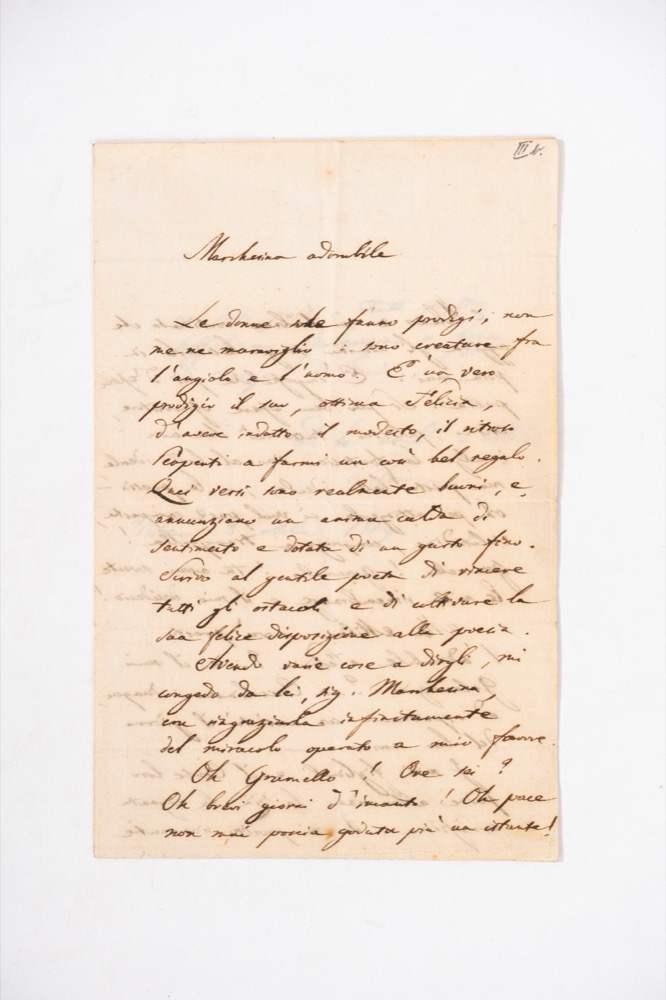 III N.
Marchesina adorabile
Le donne fanno prodigi; non
me ne maraviglio: sono creature fra
l'angiolo e l'uomo. È un vero
prodigio il suo, ottima Felicia,
d'avere indotto il modesto, il ritroso
a farmi un così bel regalo.
Quei versi sono realmente buoni, e
annunziano un anima calda di
sentimento e dotata di un gusto fino.
Scrivo al gentile poeta di vincere
tutti gli ostacoli e di cultivare la
sua felice disposizione alla poesia.
Avendo varie cose a dirgli, mi
congedo da lei, sig. Marchesina,
con ringraziarla infinitamente
del miracolo operato a mio favore.
Oh Grumello! Ove sei?
Oh brevi giorni d'incanto! Oh pace
non mai poscia goduta più un istante!